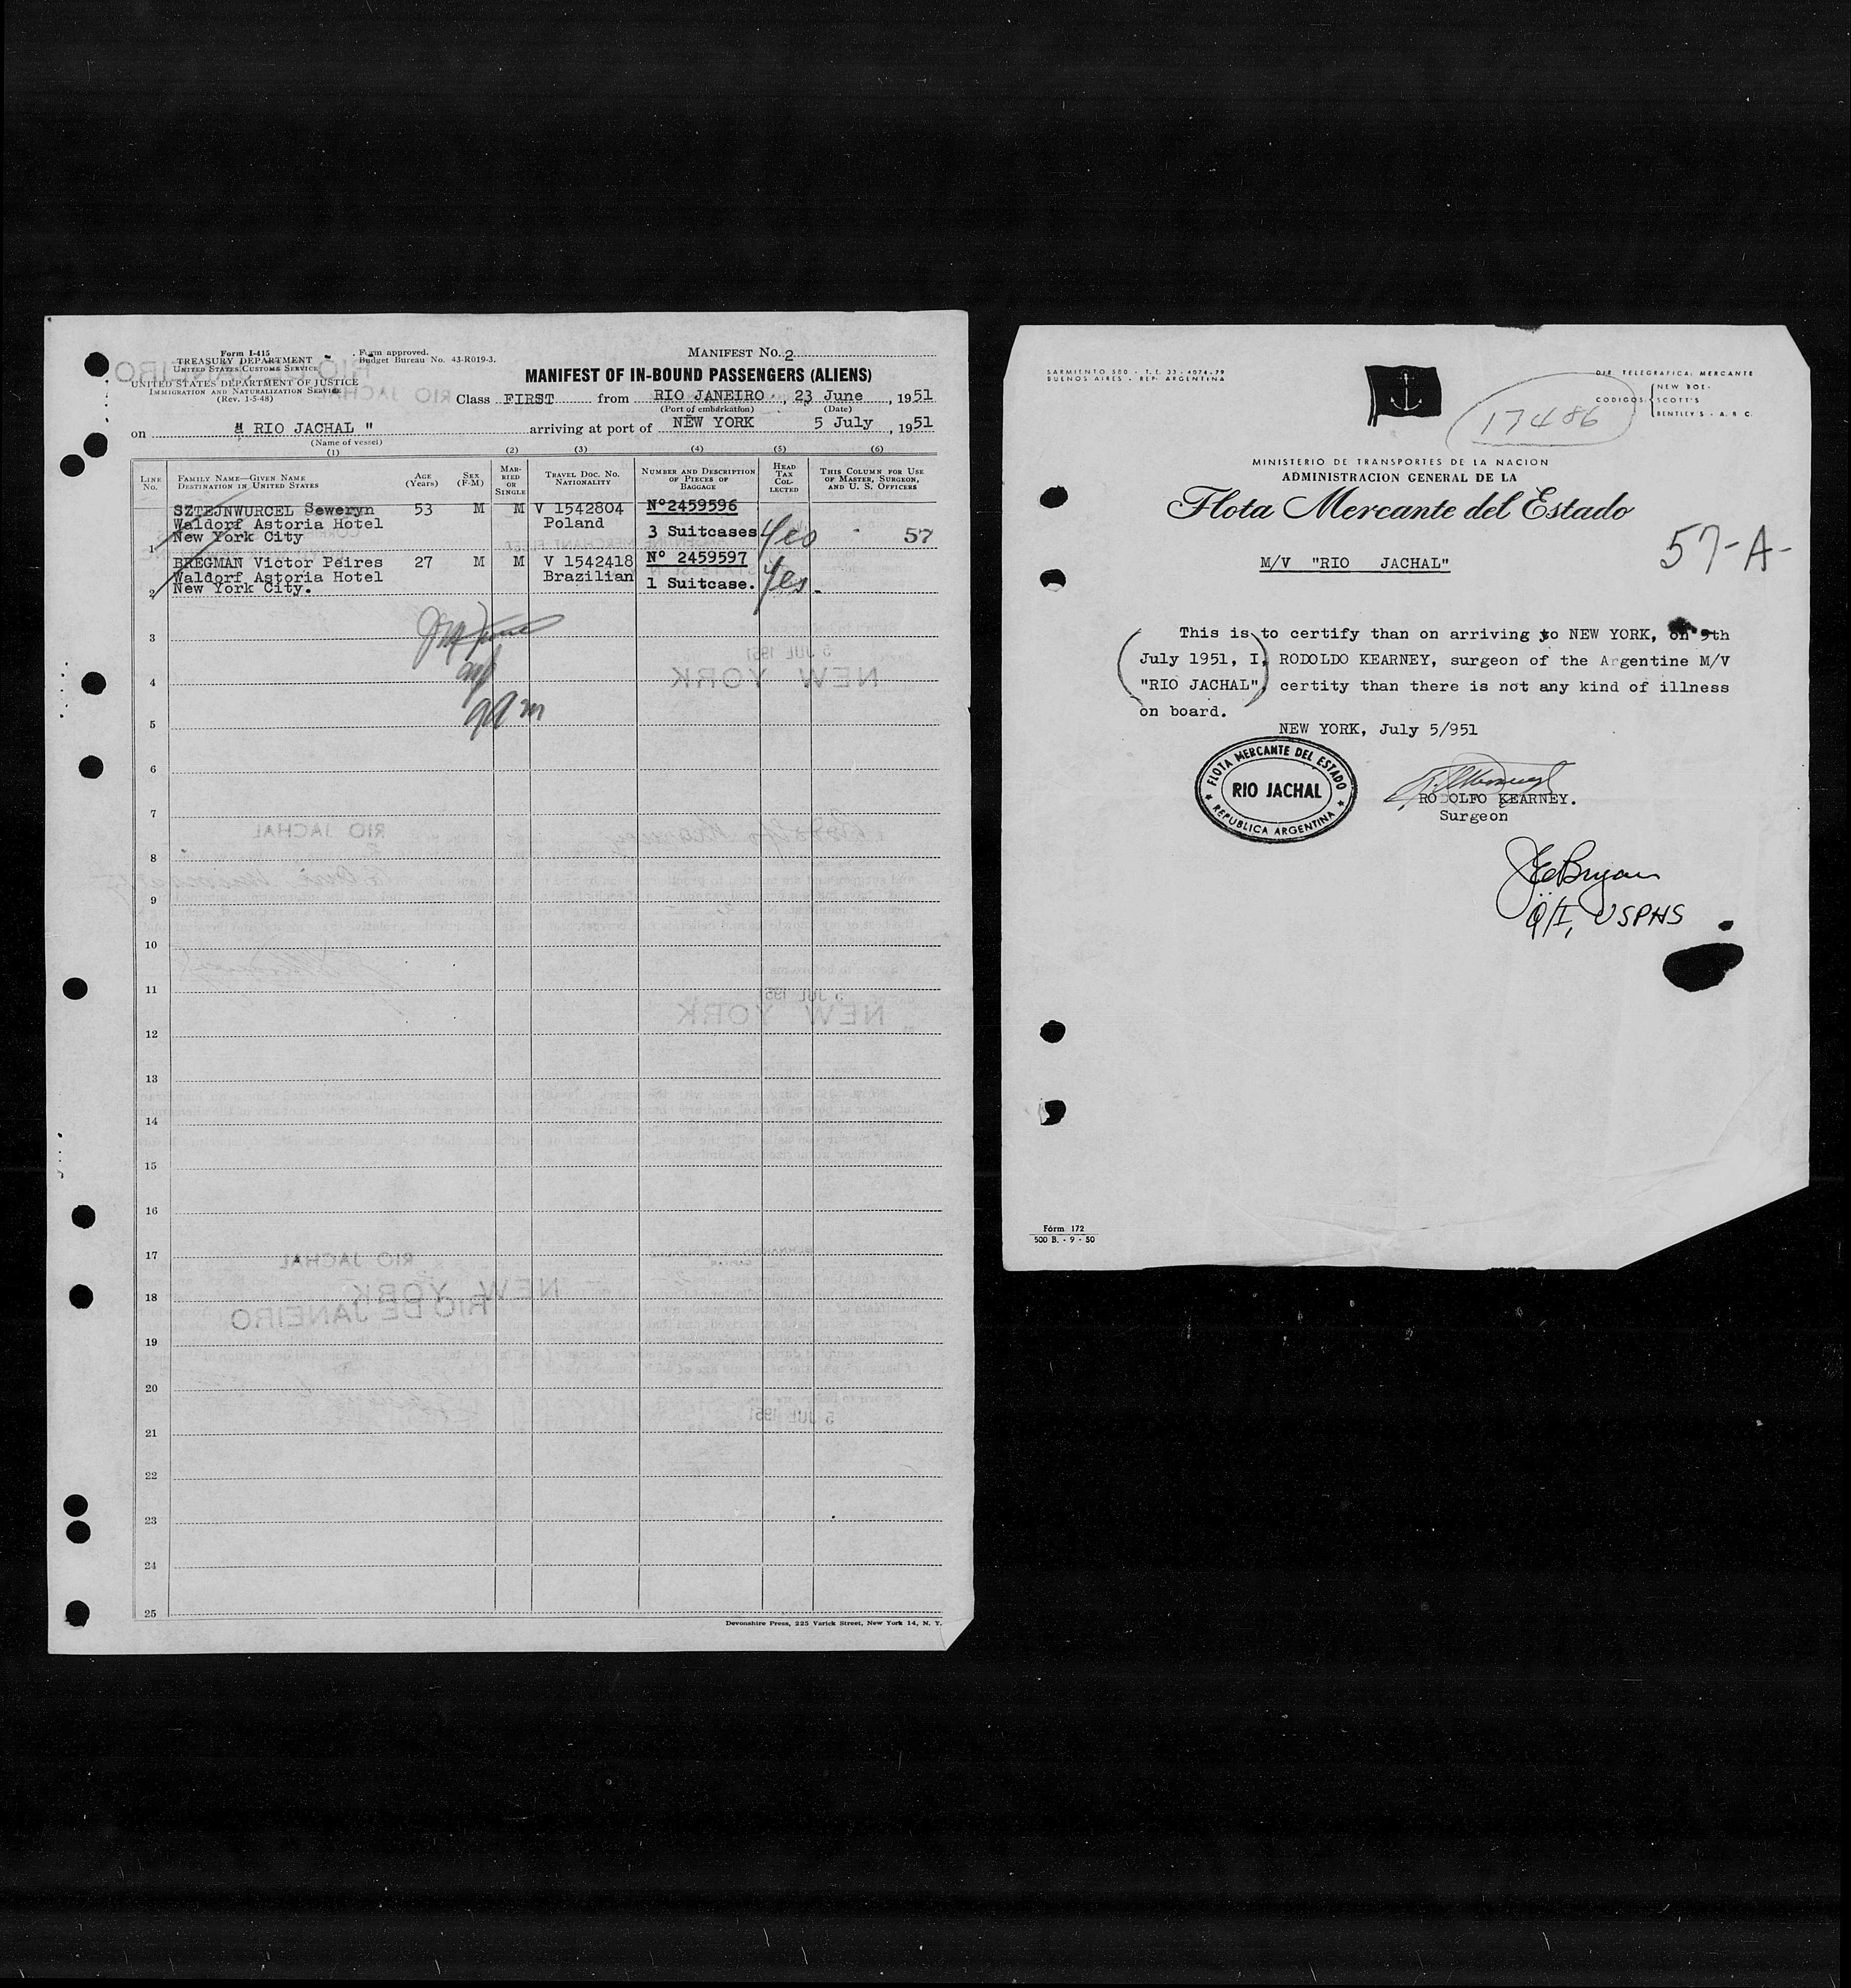 Form I-415
TREASURY DEPARTMENT
UNITED STATES CUSTOMS SERVICE
UNITED STATES DEPARTMENT OF JUSTICE
IMMIGRATION AND NATURALIZATION SERVICE
(Rev. 1-5-48)
Form approved.
Budget Bureau No. 43-R019-3.
MANIFEST No. 2
MANIFEST OF IN-BOUND PASSENGERS (ALIENS)
Class FIRST from RIO JANEIRO, 23 June, 1951
(Port of embarkation) (Date)
on " RIO JACHAL " arriving at port of NEW YORK 5 July, 1951
(Name of vessel)
(1) (2) (3) (4) (5) (6)
LINE No. FAMILY NAME—GIVEN NAME DESTINATION IN UNITED STATES AGE (Years) SEX (F-M) MARRIED OR SINGLE TRAVEL DOC. NO. NATIONALITY NUMBER AND DESCRIPTION OF PIECES OF BAGGAGE HEAD TAX COLLECTED THIS COLUMN FOR USE OF MASTER, SURGEON, AND U. S. OFFICERS
SZTEJNWURCEL Seweryn 53 M M V 1542804 Nº2459596
Waldorf Astoria Hotel Poland
1 New York City 3 Suitcases Yes 57
BREGMAN Victor Peires 27 M M V 1542418 Nº 2459597
Waldorf Astoria Hotel Brazilian
2 New York City. 1 Suitcase. Yes.
3
4
5
6
7
8
9
10
11
12
13
14
15
16
17
18
19
20
21
22
23
24
25
Devonshire Press, 225 Varick Street, New York 14, N. Y.
SARMIENTO 580 - T. E. 33 - 4074-79
BUENOS AIRES - REP. ARGENTINA
DIR. TELEGRAFICA: MERCANTE
CODIGOS: NEW BOE-
SCOTT'S
BENTLEY'S - A. B C.
17486
MINISTERIO DE TRANSPORTES DE LA NACION
ADMINISTRACION GENERAL DE LA
Flota Mercante del Estado
57-A-
M/V "RIO JACHAL"
This is to certify than on arriving to NEW YORK, on 5th
July 1951, I, RODOLDO KEARNEY, surgeon of the Argentine M/V
"RIO JACHAL", certity than there is not any kind of illness
on board.
NEW YORK, July 5/951
FLOTA MERCANTE DEL ESTADO
RIO JACHAL
REPUBLICA ARGENTINA
RODOLFO KEARNEY.
Surgeon
JEBryan
Q/I, USPHS
Fórm 172
500 B. - 9 - 50